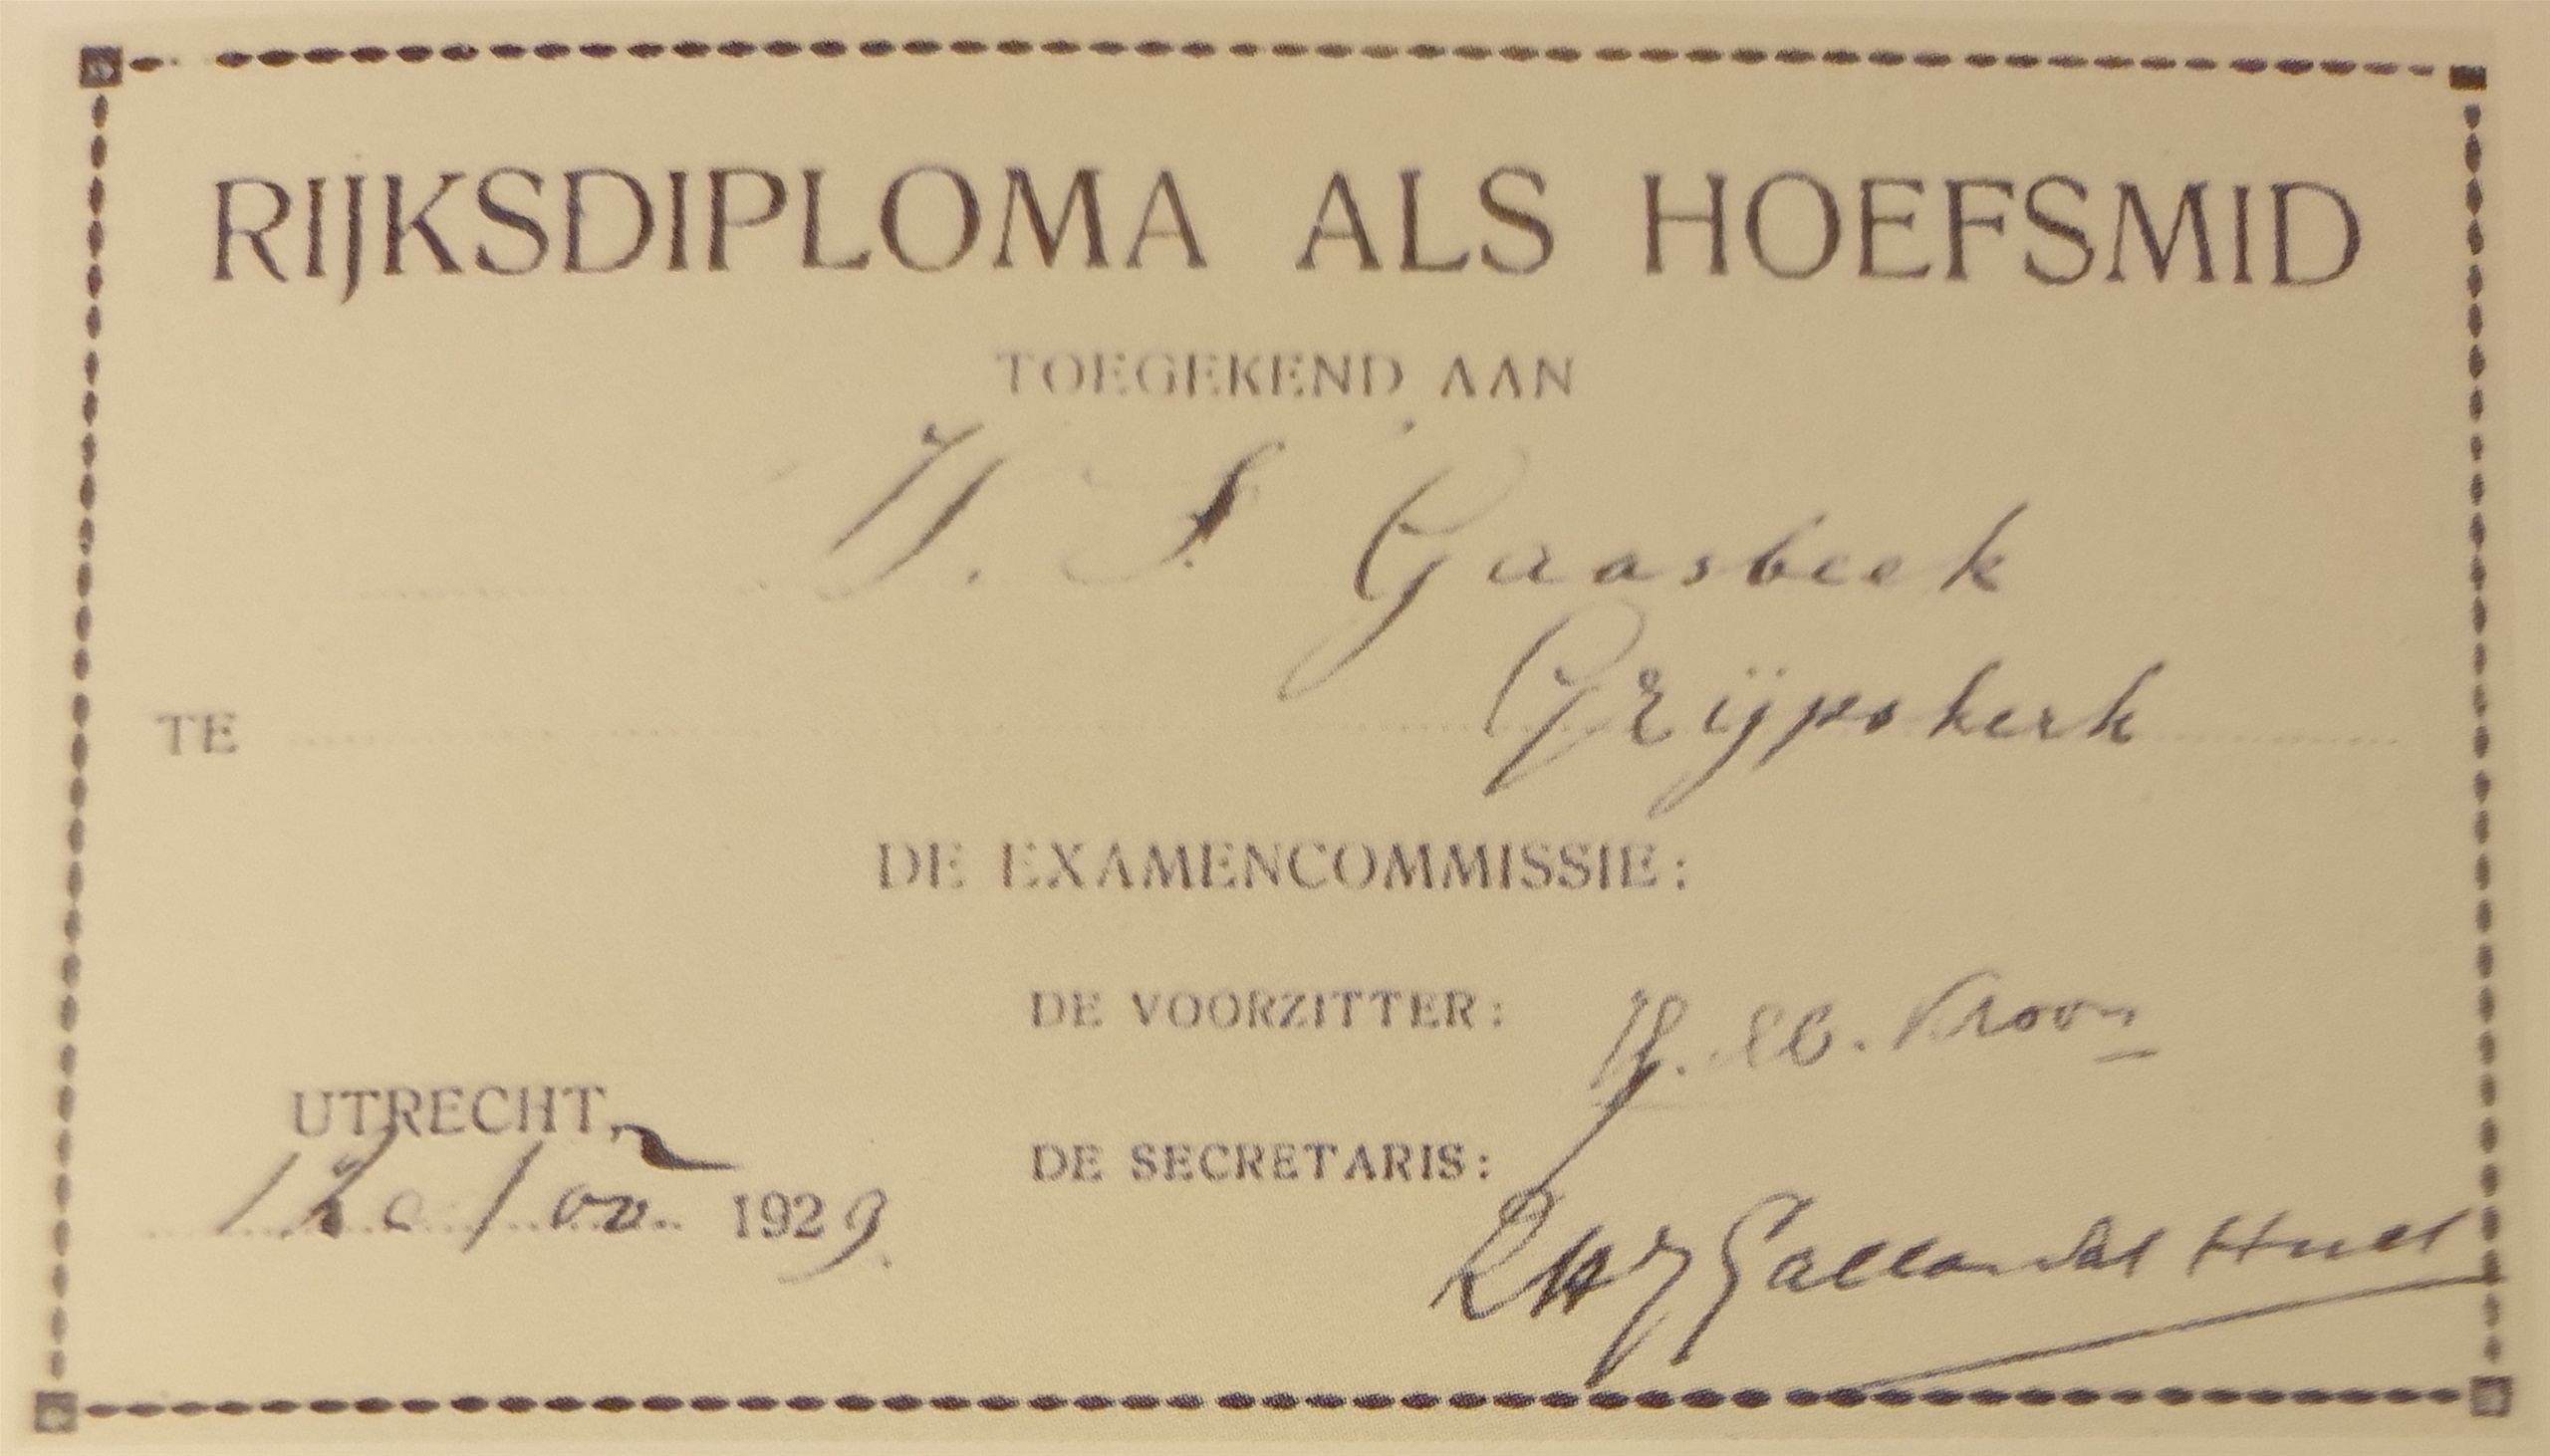 RIJKSDIPLOMA ALS HOEFSMID
TOEGEKEND AAN
Gaasbeek
TE Grijpskerk
DE EXAMENCOMMISSIE:
DE VOORZITTER: H. M. Kroon
UTRECHT,
DE SECRETARIS:
1929.
Gallandat Huet